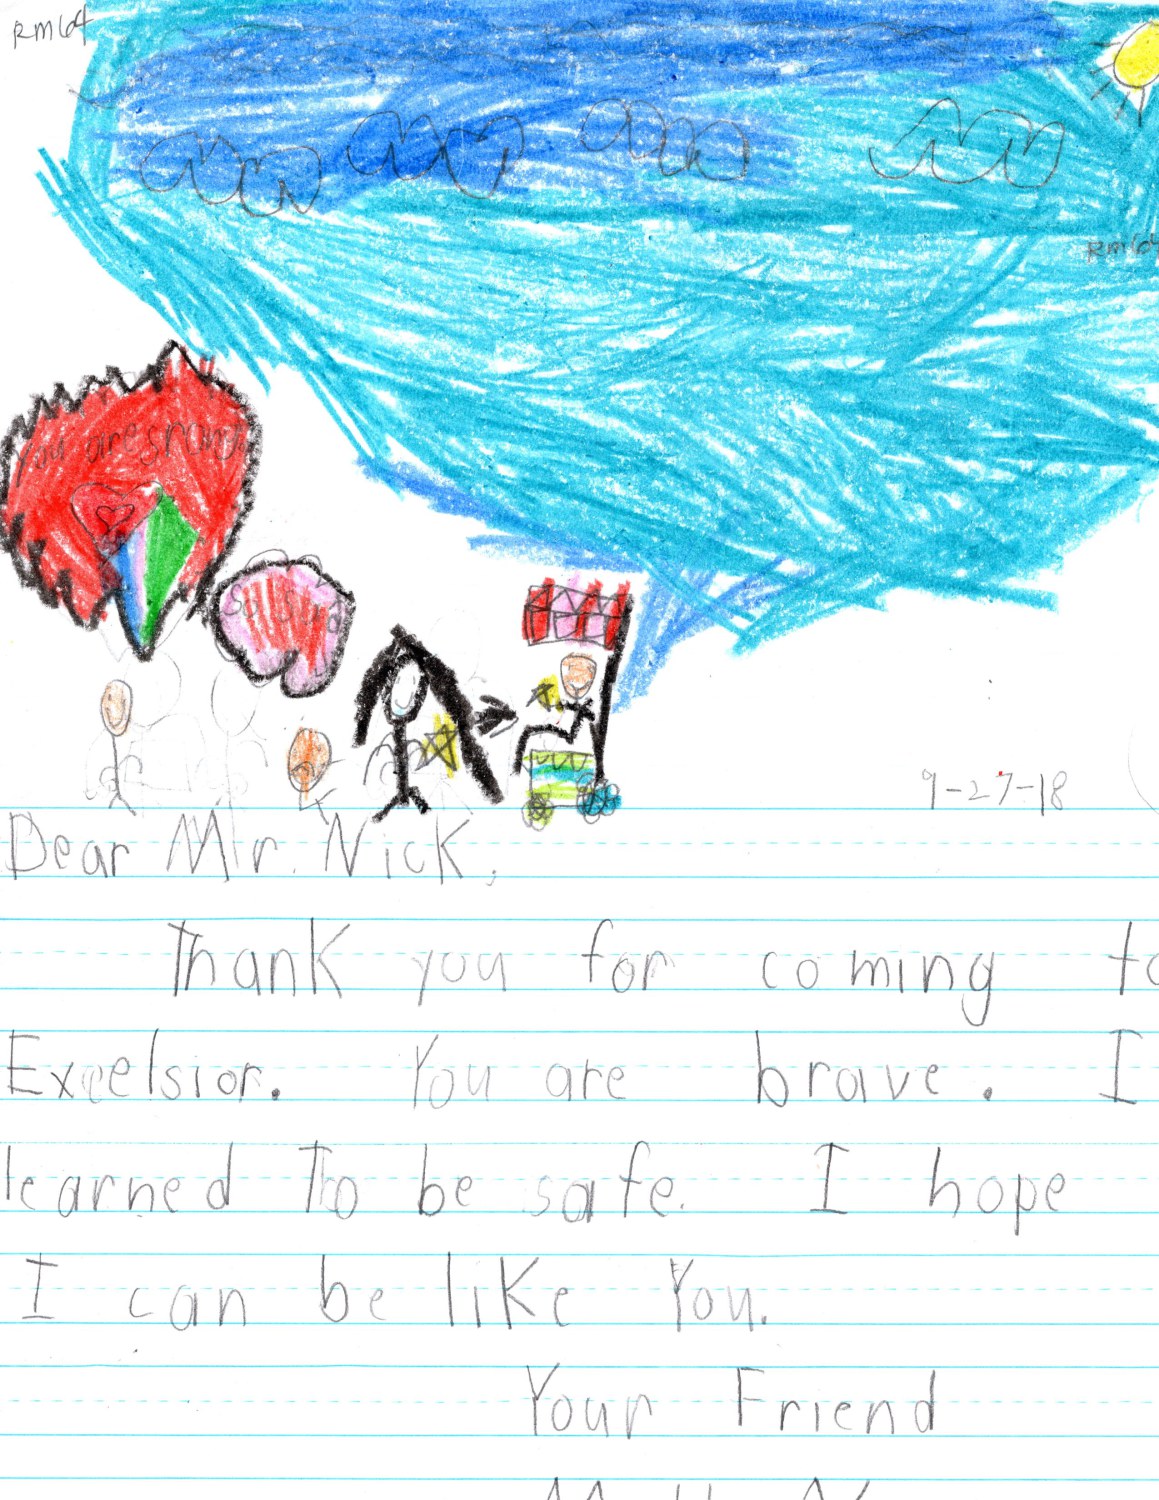 RM64
RM64
You are smart
So kind
9-27-18
Dear Mr. Nick,
Thank you for coming to
Excelsior. You are brave. I
learned to be safe. I hope
I can be like You.
Your Friend